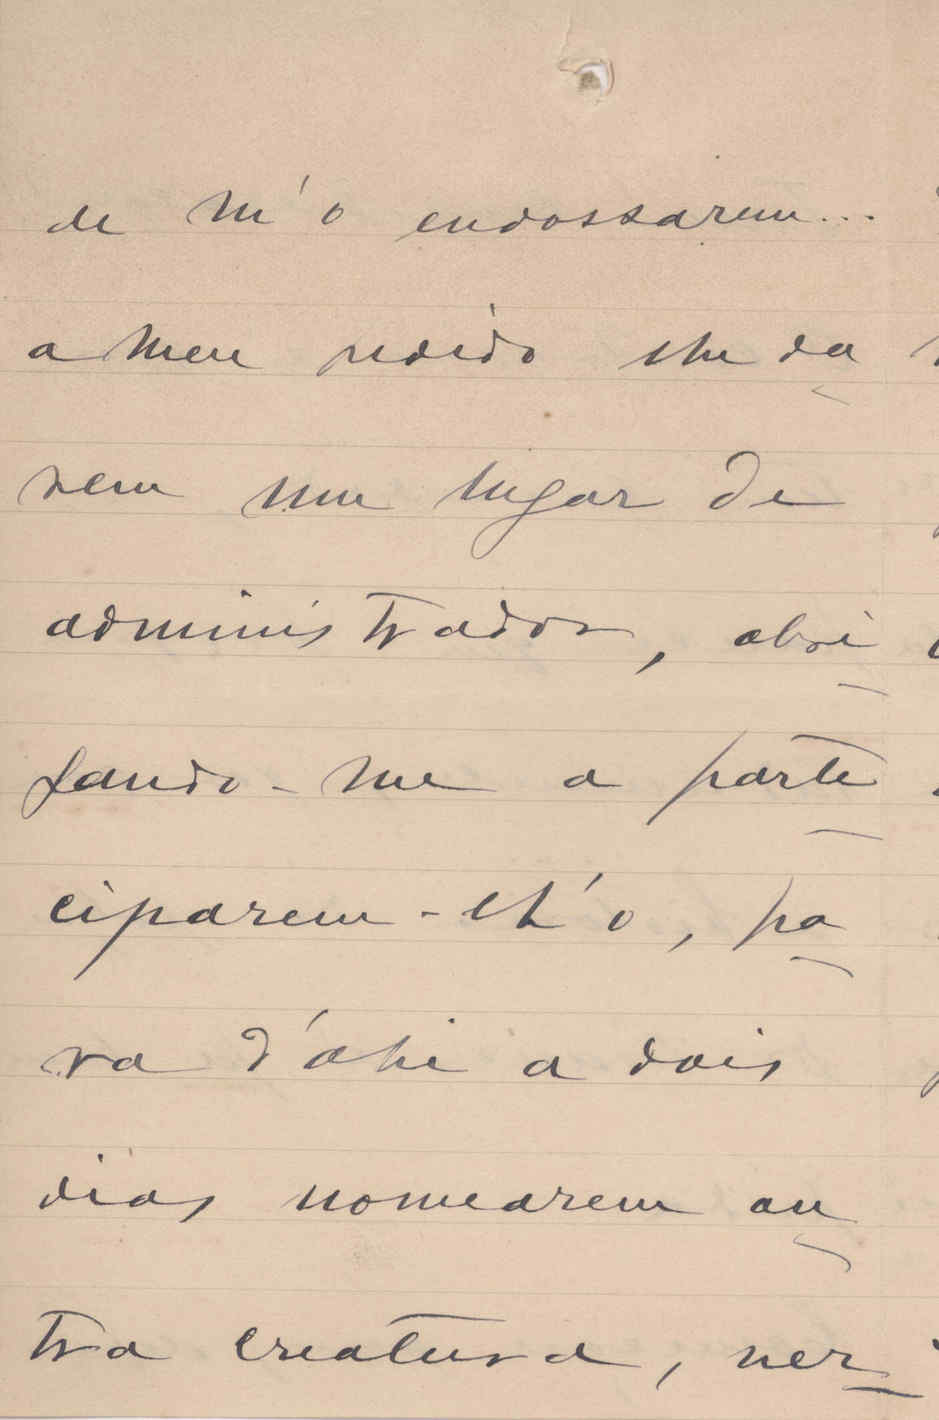 de m'o endossarem...
a meu pedido lhe da
rem um lugar de
administrador, obri
gando-me a parti
ciparem-lh'o, pa
ra d'ahi a dois
dias nomearem ou
tra creatura, ver